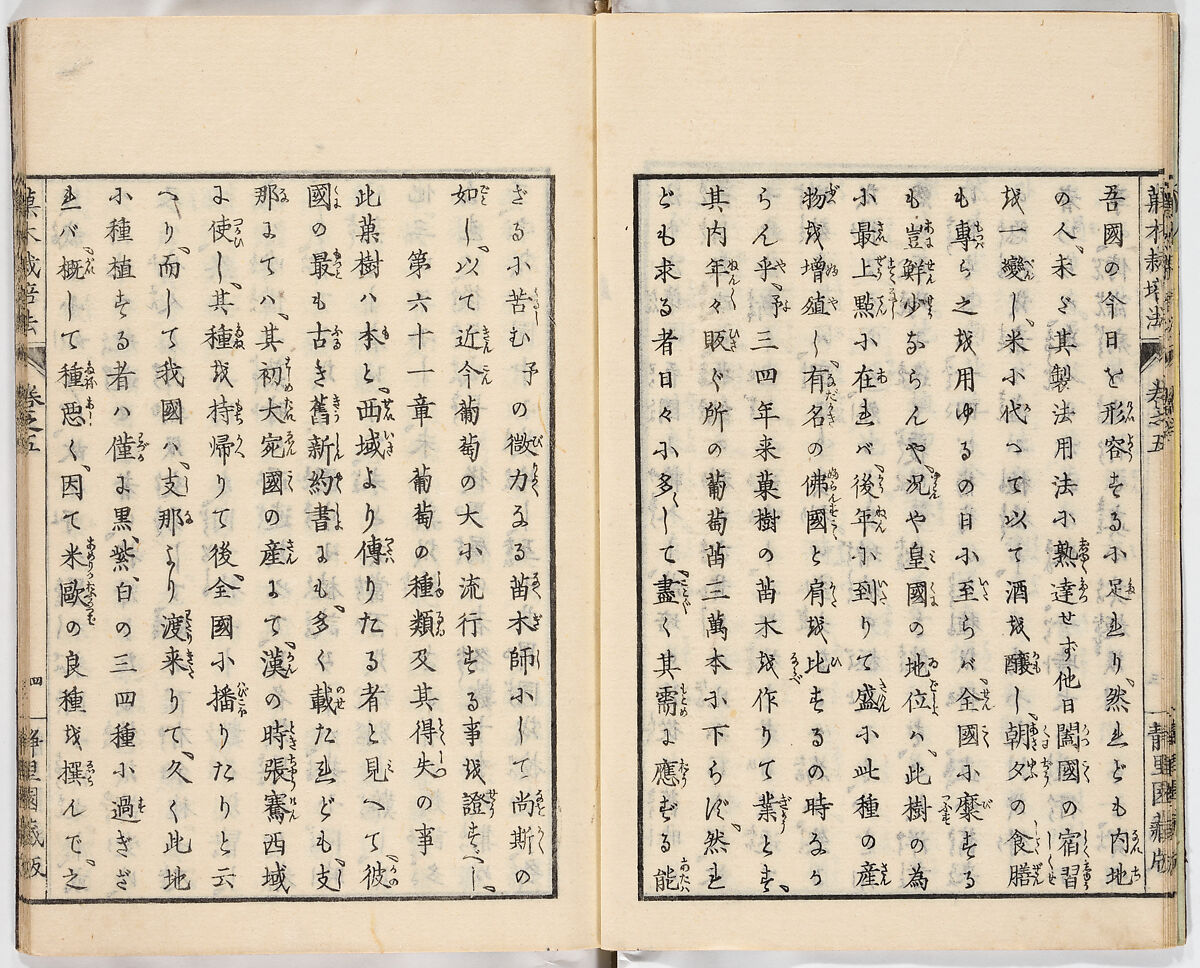 菓木栽培法 巻之五 静里園蔵版
吾國の今日を形容する小足れり、然れども内地
の人、未ゞ其製法用法小熟達せず他日闔國の宿習
を一變し、米小代へて以て酒を釀し、朝夕の食膳
も專ら之を用ゆるの日小至らバ、全國小蔓する
も豈鮮少ならんや、况や皇國の地位ハ、此樹の為
小最上點小在れバ、後年小到りて盛小此種の産
物を増殖し、有名の佛國と肩を比するの時なか
らん乎、予三四年来菓樹の苗木を作りて業とす、
其内年々販ぐ所の葡萄苗三萬本小下らず、然れ
ども求る者日々小多くして、盡く其需に應ずる能
ざる小苦む予の微力なる苗木師小して尚斯の
如し、以て近今葡萄の大小流行する事を證すべし、
第六十一章 葡萄の種類及其得失の事
此菓樹ハ本と、西域より傳りたる者と見へて、彼
國の最も古き舊新約書にも、多く載たれども、支
那にてハ、其初大宛國の産にて、漢の時張騫西域
に使し、其種を持帰りて後、全國小播りたりと云
へり、而して我國ハ、支那より渡来りて、久く此地
小種植する者ハ、僅に黒、紫、白の三四種小過ぎざ
れバ、概して種惡く、因て米歐の良種を撰んで、之
菓木栽培法 巻之五 四 静里園蔵版